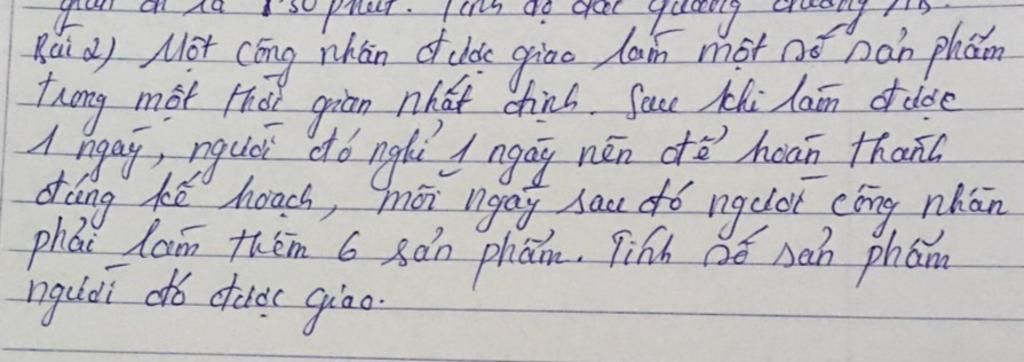 gian đi là
phút. Tính độ dài quãng đường AB.
Bài 2) Một công nhân được giao làm một số sản phẩm
trong một thời gian nhất định. Sau khi làm được
1 ngày, người đó nghỉ 1 ngày nên để hoàn thành
đúng kế hoạch, mỗi ngày sau đó người công nhân
phải làm thêm 6 sản phẩm. Tính số sản phẩm
người đó được giao.